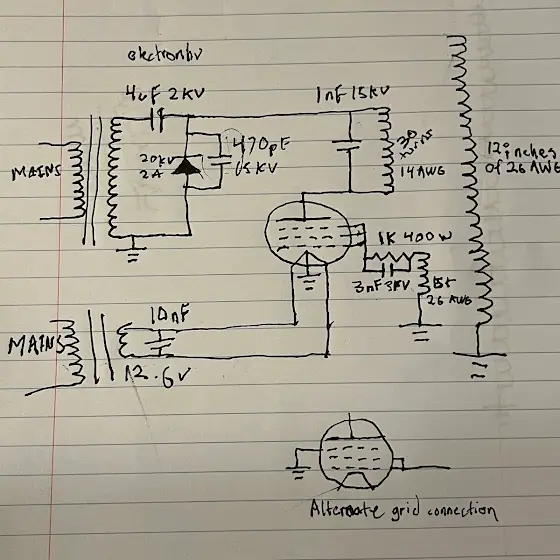 electronbv
4uF 2KV
1nF 15KV
MAINS
20KV
2A
470pF
15KV
30
turns
14AWG
12 inches
of 26 AWG
1K 400W
3nF 3KV
15t
26 AWG
10nF
MAINS
12.6V
Alternate grid connection